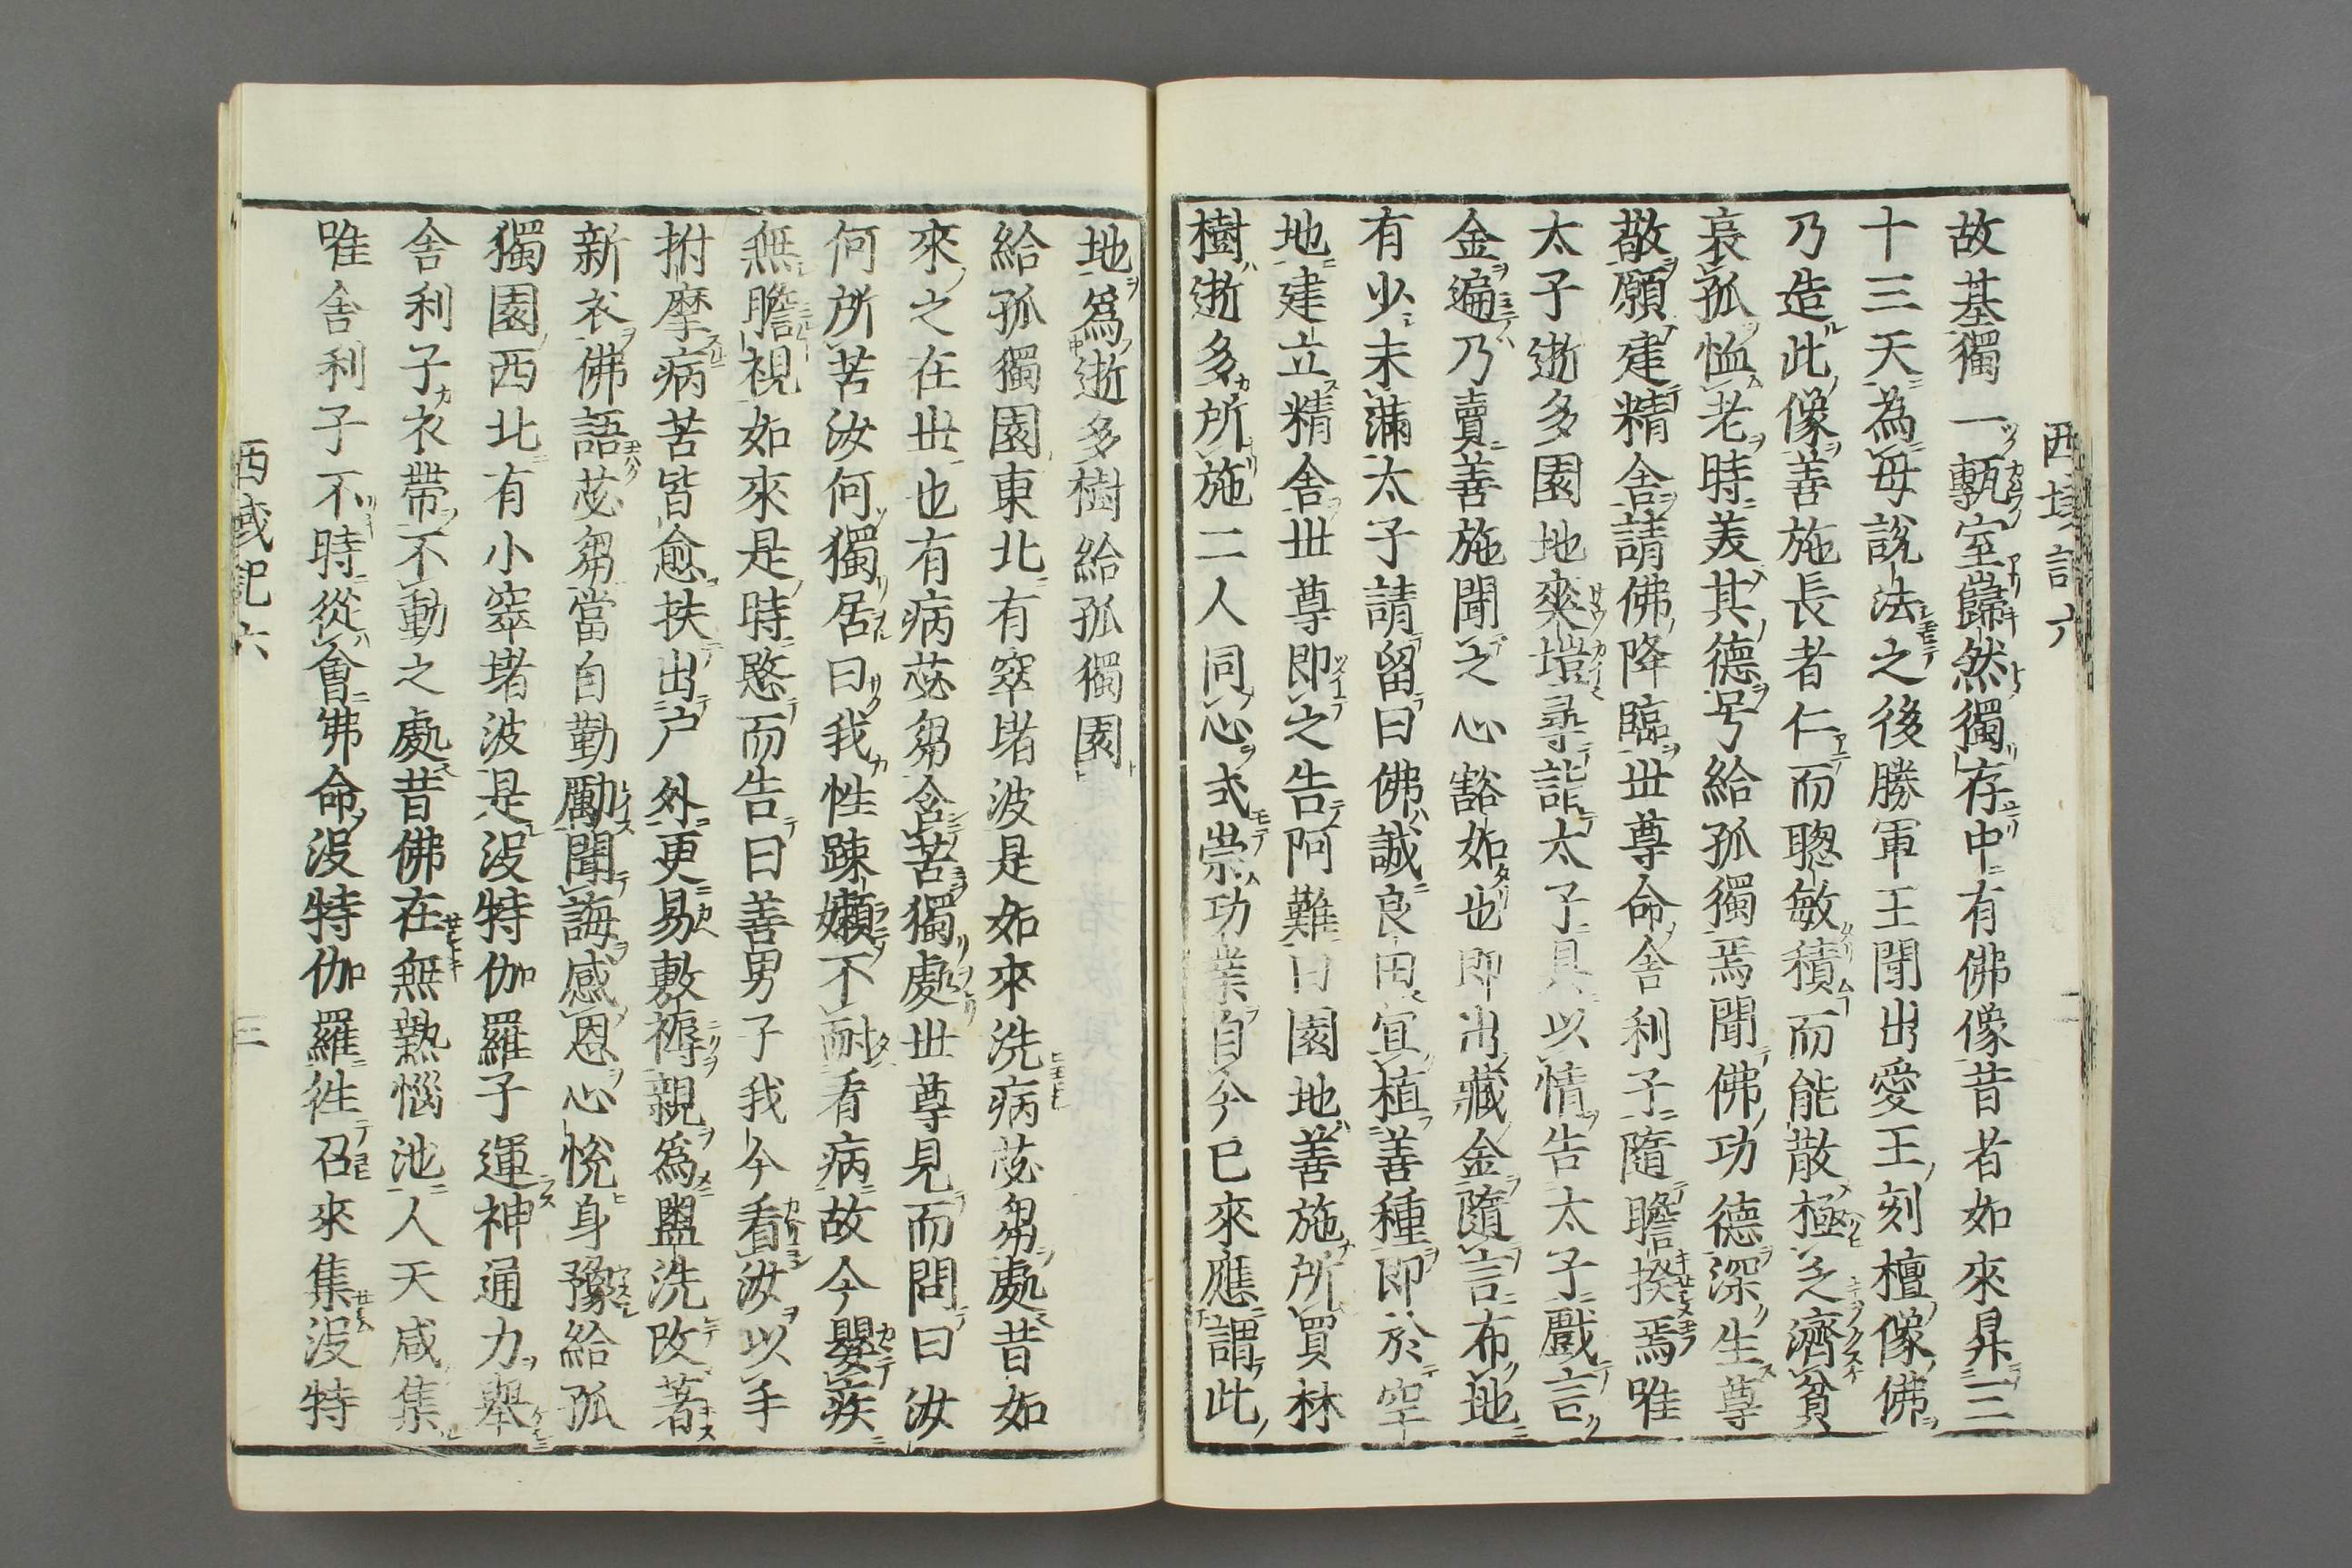 西域記六
故基獨一甎室巋然獨存中有佛像昔者如來昇三
十三天為母說法之後勝軍王聞出愛王刻檀像佛
乃造此像善施長者仁而聰敏積而能散極乏濟貧
哀孤恤老時美其德号給孤獨焉聞佛功德深生尊
敬願建精舍請佛降臨世尊命舍利子隨瞻揆焉唯
太子逝多園地爽塏尋詣太子具以情告太子戲言
金遍乃賣善施聞之心豁如也即出藏金隨言布地
有少未滿太子請留曰佛誠良田宜植善種即於空
地建立精舍世尊即之告阿難曰園地善施所買林
樹逝多所施二人同心式崇功業自今已來應謂此
地爲逝多樹給孤獨園
給孤獨園東北有窣堵波是如來洗病苾芻處昔如
來之在世也有病苾芻含苦獨處世尊見而問曰汝
何所苦汝何獨居曰我性踈嬾不耐看病故今嬰疾
無瞻視如來是時愍而告曰善男子我今看汝以手
拊摩病苦皆愈扶出戶外更易敷褥親爲盥洗改著
新衣佛語苾芻當自勤勵聞誨感恩心悅身豫給孤
獨園西北有小窣堵波是沒特伽羅子運神通力舉
舍利子衣帶不動之處昔佛在無熱惱池人天咸集
唯舍利子不時從會佛命沒特伽羅徃召來集沒特
西域記六
三